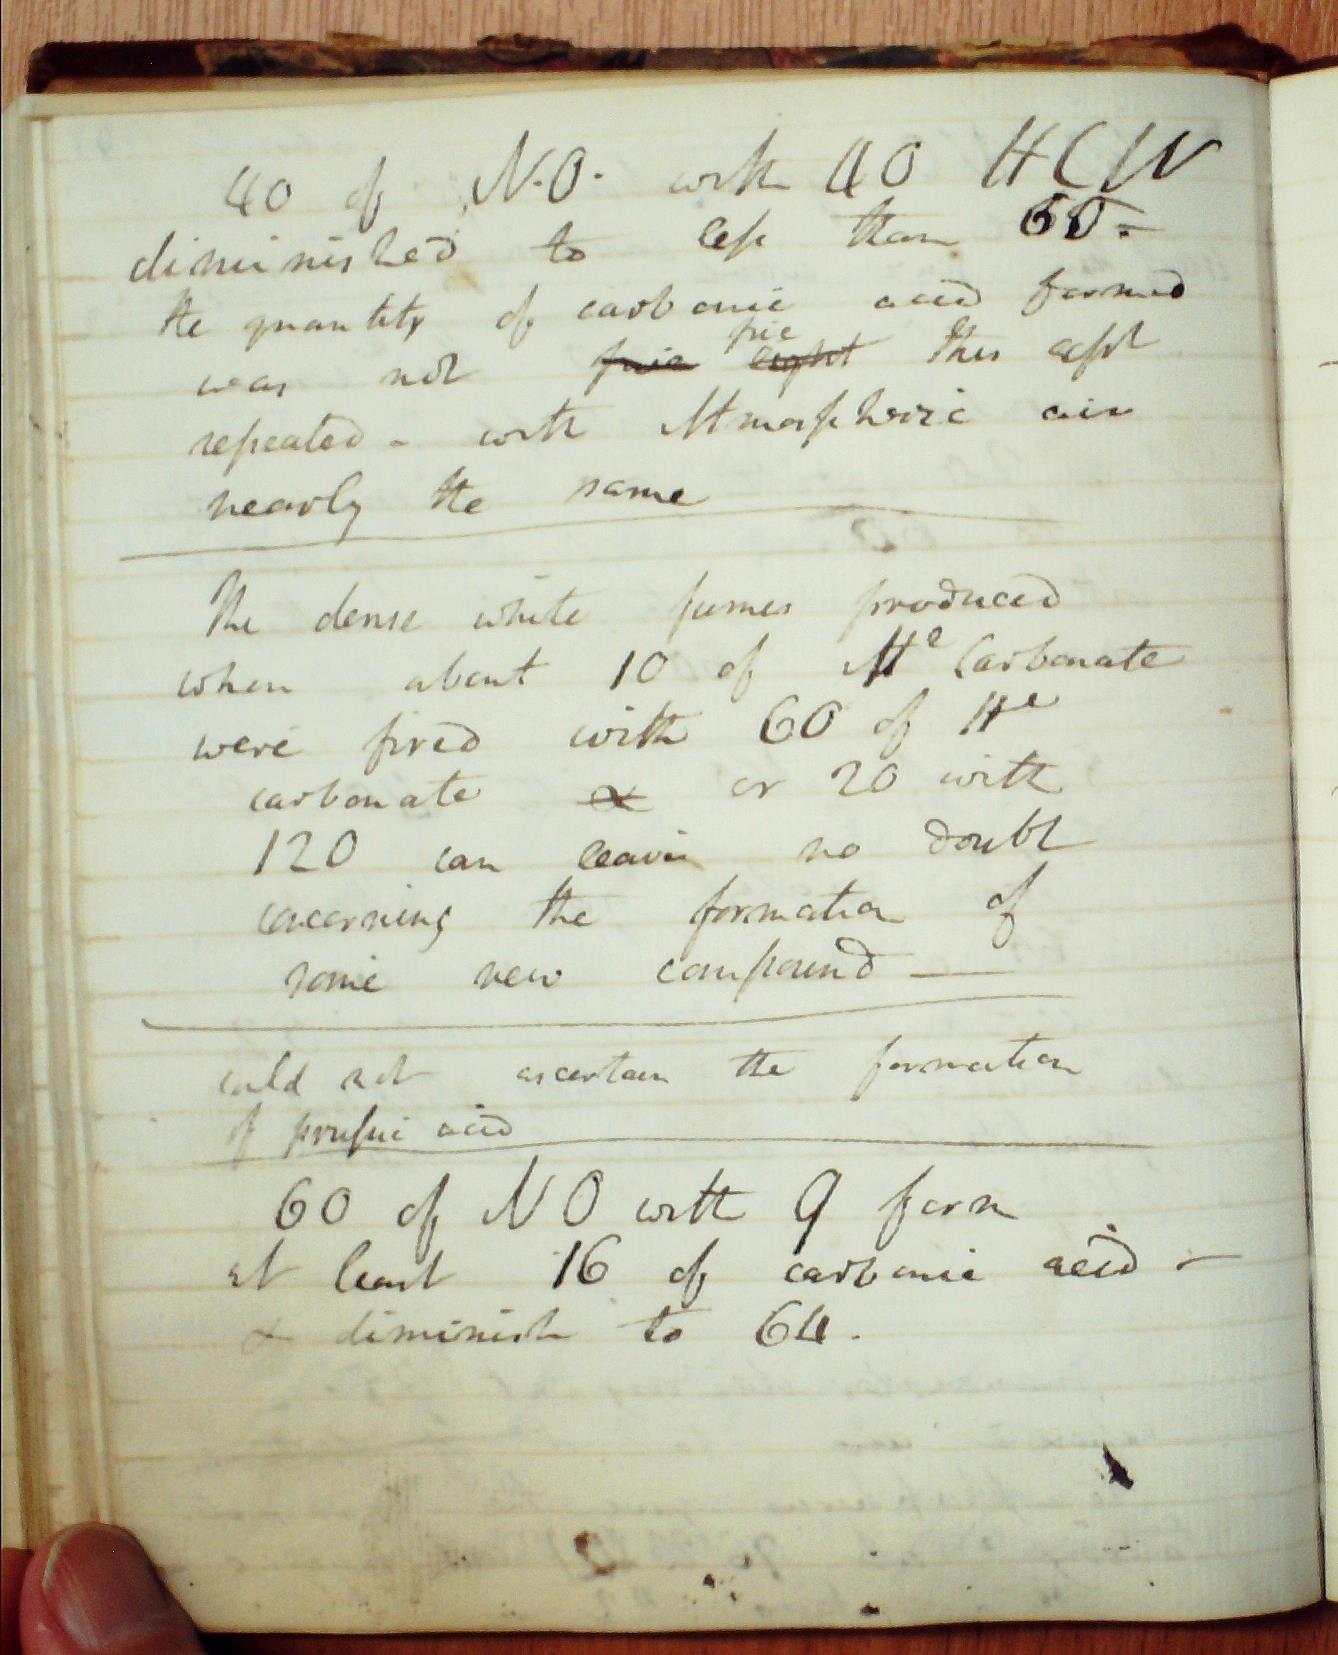 40 of N.O. with 40 HCW
diminished to less than 60.-
the quantity of carbonic acid formed
was not five eight five this expt
repeated - with Atmospheric air
nearly the same
The dense white fumes produced
when about 10 of Carbonate
were fired with 60 of He
carbonate & or 20 with
120 can leave no doubt
concerning the formation of
some new compound —
could not ascertain the formation
of prussic acid
60 of NO with 9 form
at least 16 of carbonic acid -
& diminish to 64.